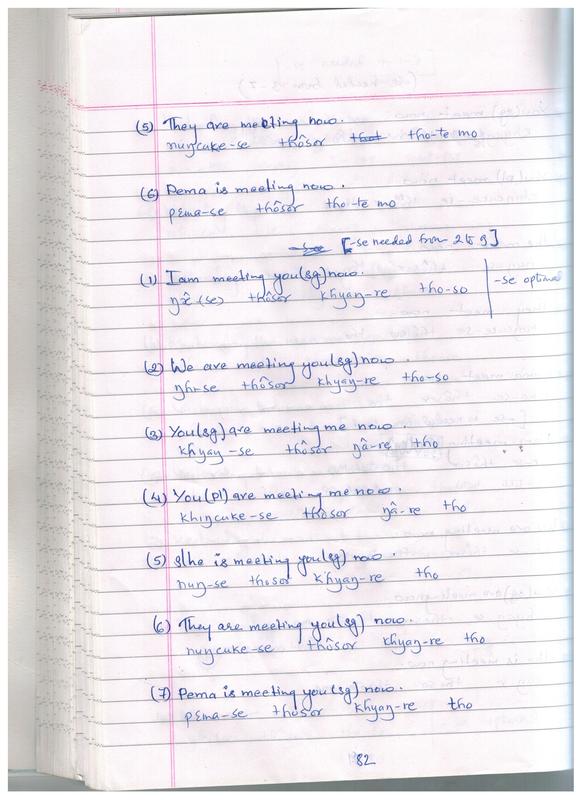 (5) They are meeting now.
nuŋcuke-se thôsor thot tho-te mo
(6) Pema is meeting now.
pɛma-se thôsor tho-te mo
[-se needed from 2 to 9]
(1) I am meeting you(sg) now.
ŋɛ̂ (se) thôsor khyaŋ-re tho-so | -se optional
(2) We are meeting you(sg) now.
ŋhi-se thôsor khyaŋ-re tho-so
(3) You(sg) are meeting me now.
khyaŋ-se thôsor ŋâ-re tho
(4) You(pl) are meeting me now.
khiŋcuke-se thôsor ŋâ-re tho
(5) s/he is meeting you(sg) now.
nuŋ-se thosor khyaŋ-re tho
(6) They are meeting you(sg) now.
nuŋcuke-se thôsor khyaŋ-re tho
(7) Pema is meeting you(sg) now.
pɛma-se thosor khyaŋ-re tho
82